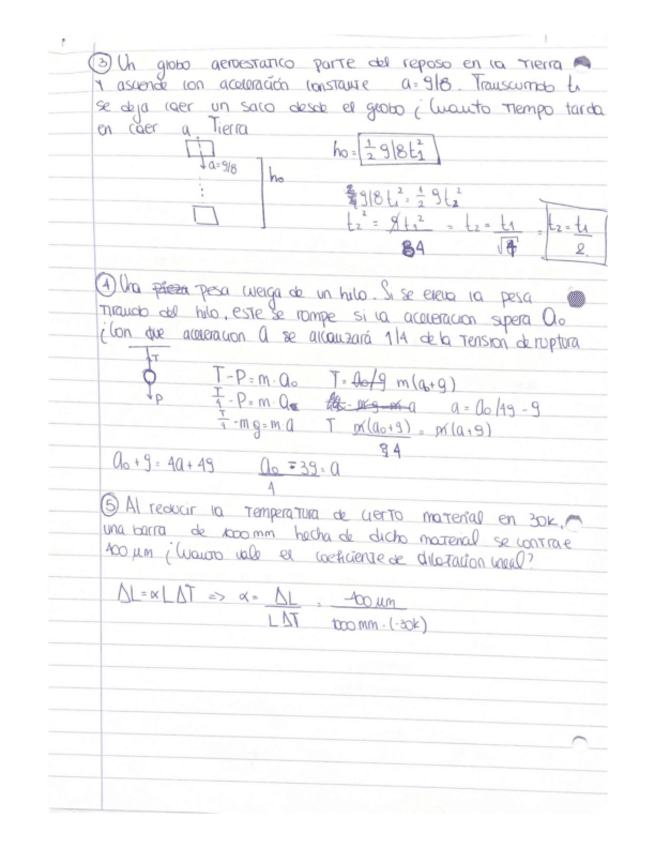 ③ Un globo aeroestatico parte del reposo en la Tierra
Y asciende con aceleración constante a=g/8. Transcurrido t₁
se deja caer un saco desde el globo ¿Cuanto Tiempo tarda
en caer a Tierra
a=g/8
h₀
h₀ = ½ g/8 t₁²
g/8 t₁² = ½ g t₂²
t₂² = g t₁² / 4 = t₂ = t₁/√4 = t₂ = t₁/2
④ Una pesa cuelga de un hilo. Si se eleva la pesa
Tirando del hilo, este se rompe si la aceleracion supera a₀
¿Con que aceleracion a se alcanzará 1/4 de la Tension de ruptura
T
P
T-P=m·a₀ T= m(a₀+g)
T/4 -P=m·a a=a₀/4g -g
T/4 -mg=m·a T m(a₀+g)/4 = m(a+g)
a₀+g=4a+4g a₀/4 = 3g=a
⑤ Al reducir la Temperatura de cierto material en 30K,
una barra de 1000mm hecha de dicho material se contrae
100 μm ¿Cuanto vale el coeficiente de dilatacion lineal?
ΔL=αLΔT => α= ΔL/LΔT = -100 μm/1000mm·(-30K)